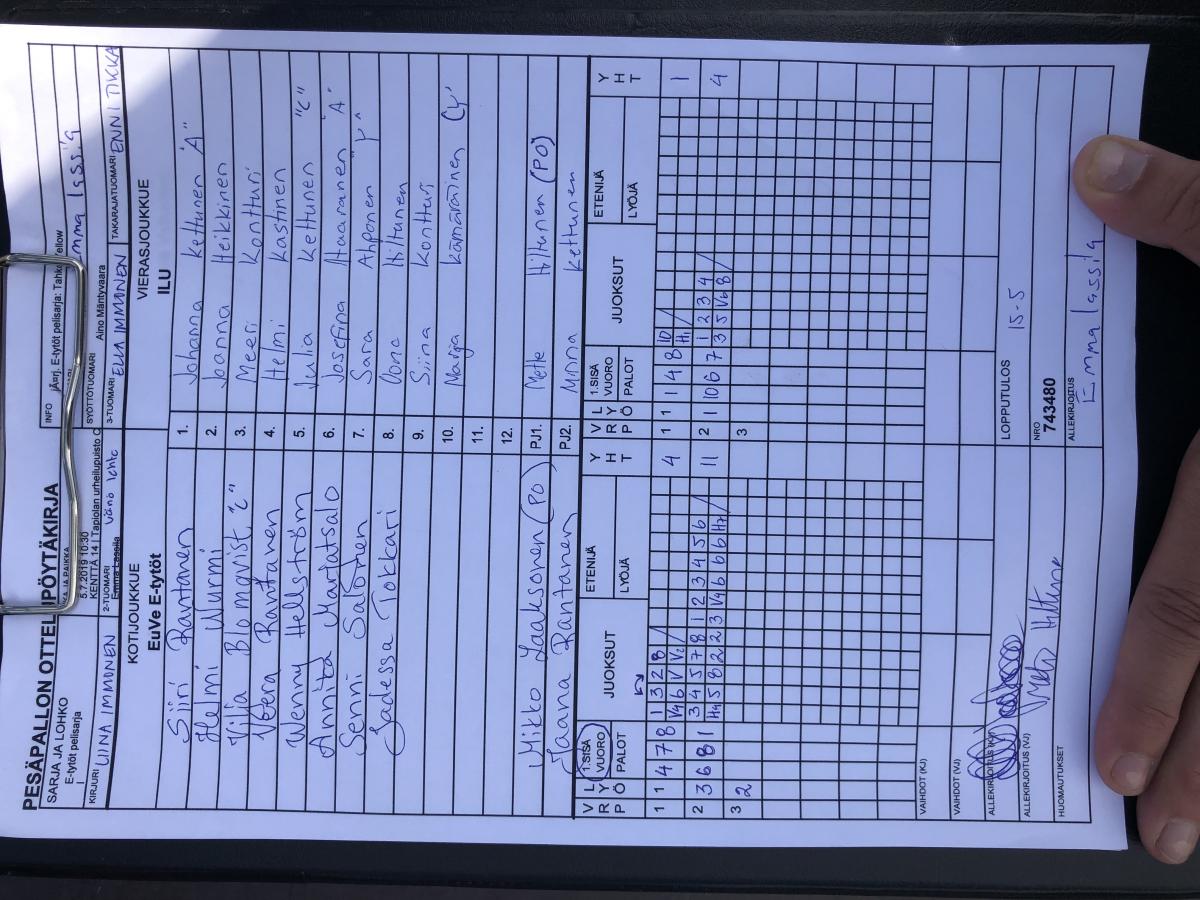 PESÄPALLON OTTELUPÖYTÄKIRJA
SARJA JA LOHKO
E-tytöt pelisarja
I
KA JA PAIKKA
5.7.2019 10:30
KENTTÄ 14 | Tapiolan urheilupuisto C
INFO
E-tytöt pelisarja: Tahko Yellow
KIRJURI
2-TUOMARI
Emma Lassila
SYÖTTÖTUOMARI
Aino Mäntyvaara
Emma Lassila
3-TUOMARI ELLA IMMONEN
TAKARAJATUOMARI ENNI TIKKA
KOTIJOUKKUE
EuVe E-tytöt
VIERASJOUKKUE
ILU
Siiri Rantanen 1. Johanna Kettunen "A"
Helmi Nurmi 2. Jonna Heikkinen
Vilja Blomqvist "C" 3. Meeri Kontturi
Veera Rantanen 4. Helmi Kastinen
Wenny Hellström 5. Julia Kettunen "C"
Anniita Martatsalo 6. Josefina Haaranen "A"
Senni Salonen 7. Sara Ahponen
Jadessa Tokkari 8. Oona Hiltunen
9. Siina Kontturi
10. Marija Kämäräinen
11.
12.
Mikko Laaksonen (PO) PJ1. Mette Hiltunen (PO)
Jaana Rantanen PJ2. Minna Kettunen
V R P L Y Ö 1.SISÄ VUORO PALOT JUOKSUT ETENIJÄ LYÖJÄ Y H T V R P L Y Ö 1.SISÄ VUORO PALOT JUOKSUT ETENIJÄ LYÖJÄ Y H T
1 1 4 7 8 1 3 2 8 / 4 1 1 1 4 8 10 / 1
V4 6 V V2 H1
2 3 6 8 1 3 4 5 7 8 1 2 3 4 5 6 11 2 1 10 6 7 1 2 3 4 / 4
H4 5 8 2 2 3 V4 6 6 6 H7 3 5 V6 8
3 2 3
VAIHDOT (KJ)
VAIHDOT (VJ)
LOPPUTULOS 15-5
ALLEKIRJOITUS (KJ)
ALLEKIRJOITUS (VJ)
NRO
743480
HUOMAUTUKSET
ALLEKIRJOITUS
Emma Lassila